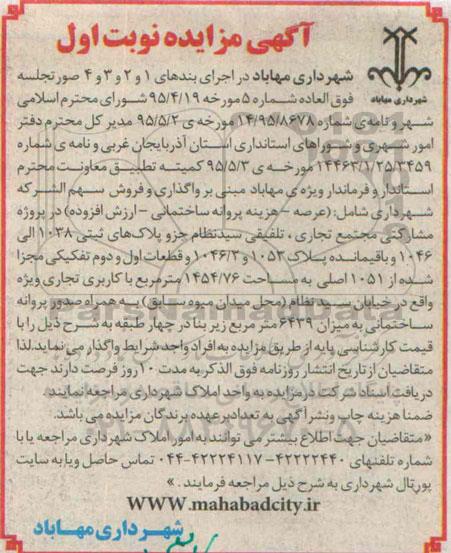 آگهی مزایده نوبت اول
شهرداری مهاباد
شهرداری مهاباد در اجرای بندهای ۱ و ۲ و ۳ و ۴ صورتجلسه
فوق العاده شماره ۵ مورخه ۹۵/۴/۱۹ شورای محترم اسلامی
شهر و نامه‌ی شماره ۱۴/۹۵/۸۶۷۸ مورخه ی ۹۵/۵/۲ مدیر کل محترم دفتر
امور شهری و شوراهای استانداری استان آذربایجان غربی و نامه ی شماره
۱۴۴۶۳/۱/۲۵/۳۴۵۹ مورخه ی ۹۵/۵/۳ کمیته تطبیق معاونت محترم
استاندار و فرماندار ویژه ی مهاباد مبنی بر واگذاری و فروش سهم الشرکه
شهرداری شامل: (عرصه - هزینه پروانه ساختمانی - ارزش افزوده) در پروژه
مشارکتی مجتمع تجاری ، تلفیقی سیدنظام جزو پلاک‌های ثبتی ۱۰۳۸ الی
۱۰۴۶ و باقیمانده پلاک ۱۰۵۳ و ۱۰۴۶/۳ و قطعات اول و دوم تفکیکی مجزا
شده از ۱۰۵۱ اصلی به مساحت ۱۴۵۴/۷۶ مترمربع با کاربری تجاری ویژه
واقع در خیابان سید نظام (محل میدان میوه سابق) به همراه صدور پروانه
ساختمانی به میزان ۶۴۳۹ متر مربع زیر بنا در چهار طبقه به شرح ذیل را با
قیمت کارشناسی پایه از طریق مزایده به افراد واجد شرایط واگذار می نماید. لذا
متقاضیان از تاریخ انتشار روزنامه فوق الذکر به مدت ۱۰ روز فرصت دارند جهت
دریافت اسناد شرکت در مزایده به واحد املاک شهرداری مراجعه نمایند.
ضمناً هزینه چاپ ونشر آگهی به تعداد بر عهده برندگان مزایده می باشد.
«متقاضیان جهت اطلاع بیشتر می توانند به امور املاک شهرداری مراجعه یا با
شماره تلفنهای ۴۲۲۲۲۴۴۰ - ۴۲۲۲۴۱۱۷-۰۴۴ تماس حاصل ویا به سایت
پورتال شهرداری به شرح ذیل مراجعه فرمایند . »
WWW.mahabadcity.ir
شهرداری مهاباد